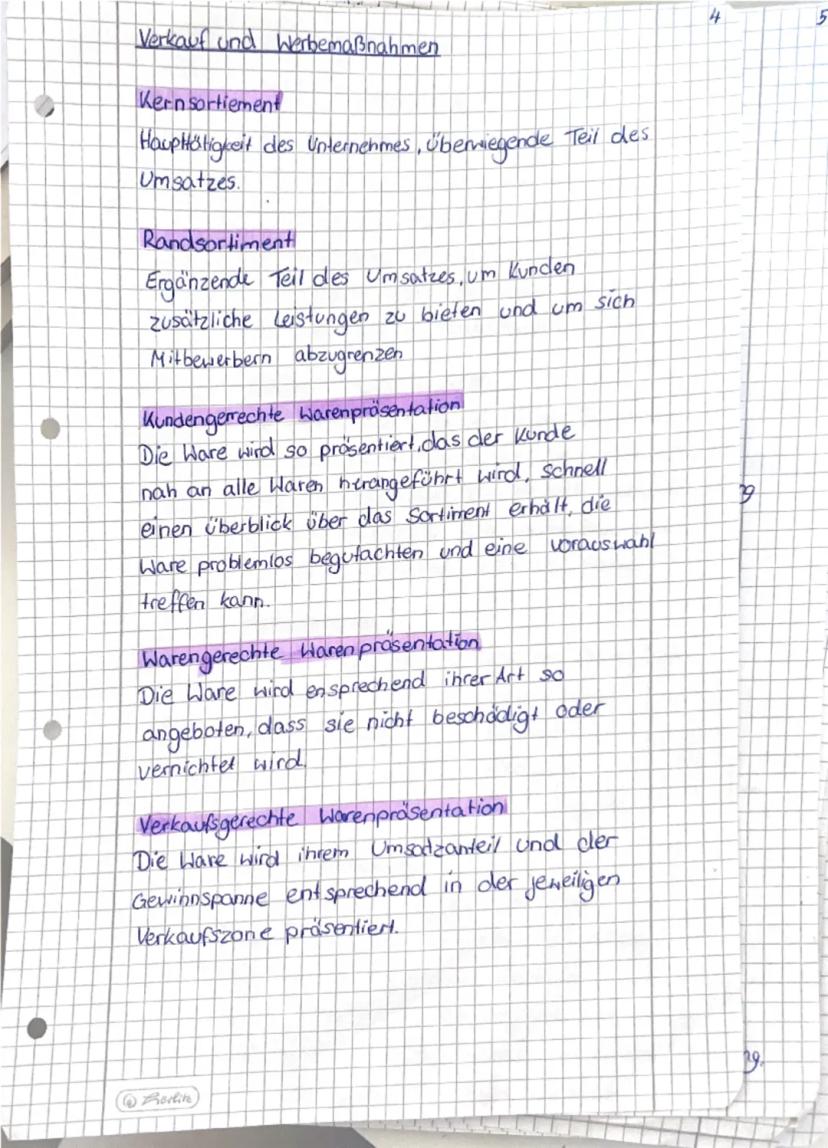 4
5
Verkauf und Werbemaßnahmen
Kernsortiement
Haupttätigkeit des Unternehmes, überwiegende Teil des
Umsatzes.
Randsortiment
Ergänzende Teil des Umsatzes, um Kunden
zusätzliche Leistungen zu bieten und um sich
Mitbewerbern abzugrenzen
Kundengerrechte Warenpräsentation
Die Ware wird so präsentiert, das der Kunde
nah an alle Waren herangeführt wird, schnell
einen überblick über das Sortiment erhält, die
Ware problemlos begutachten und eine vorauswahl
treffen kann.
Warengerechte Warenpräsentation
Die Ware wird ensprechend ihrer Art so
angeboten, dass sie nicht beschädigt oder
vernichtet wird.
Verkaufsgerechte Warenpräsentation
Die Ware wird ihrem Umsatzanteil und der
Gewinnspanne entsprechend in der jeweiligen
Verkaufszone präsentiert.
Berlin